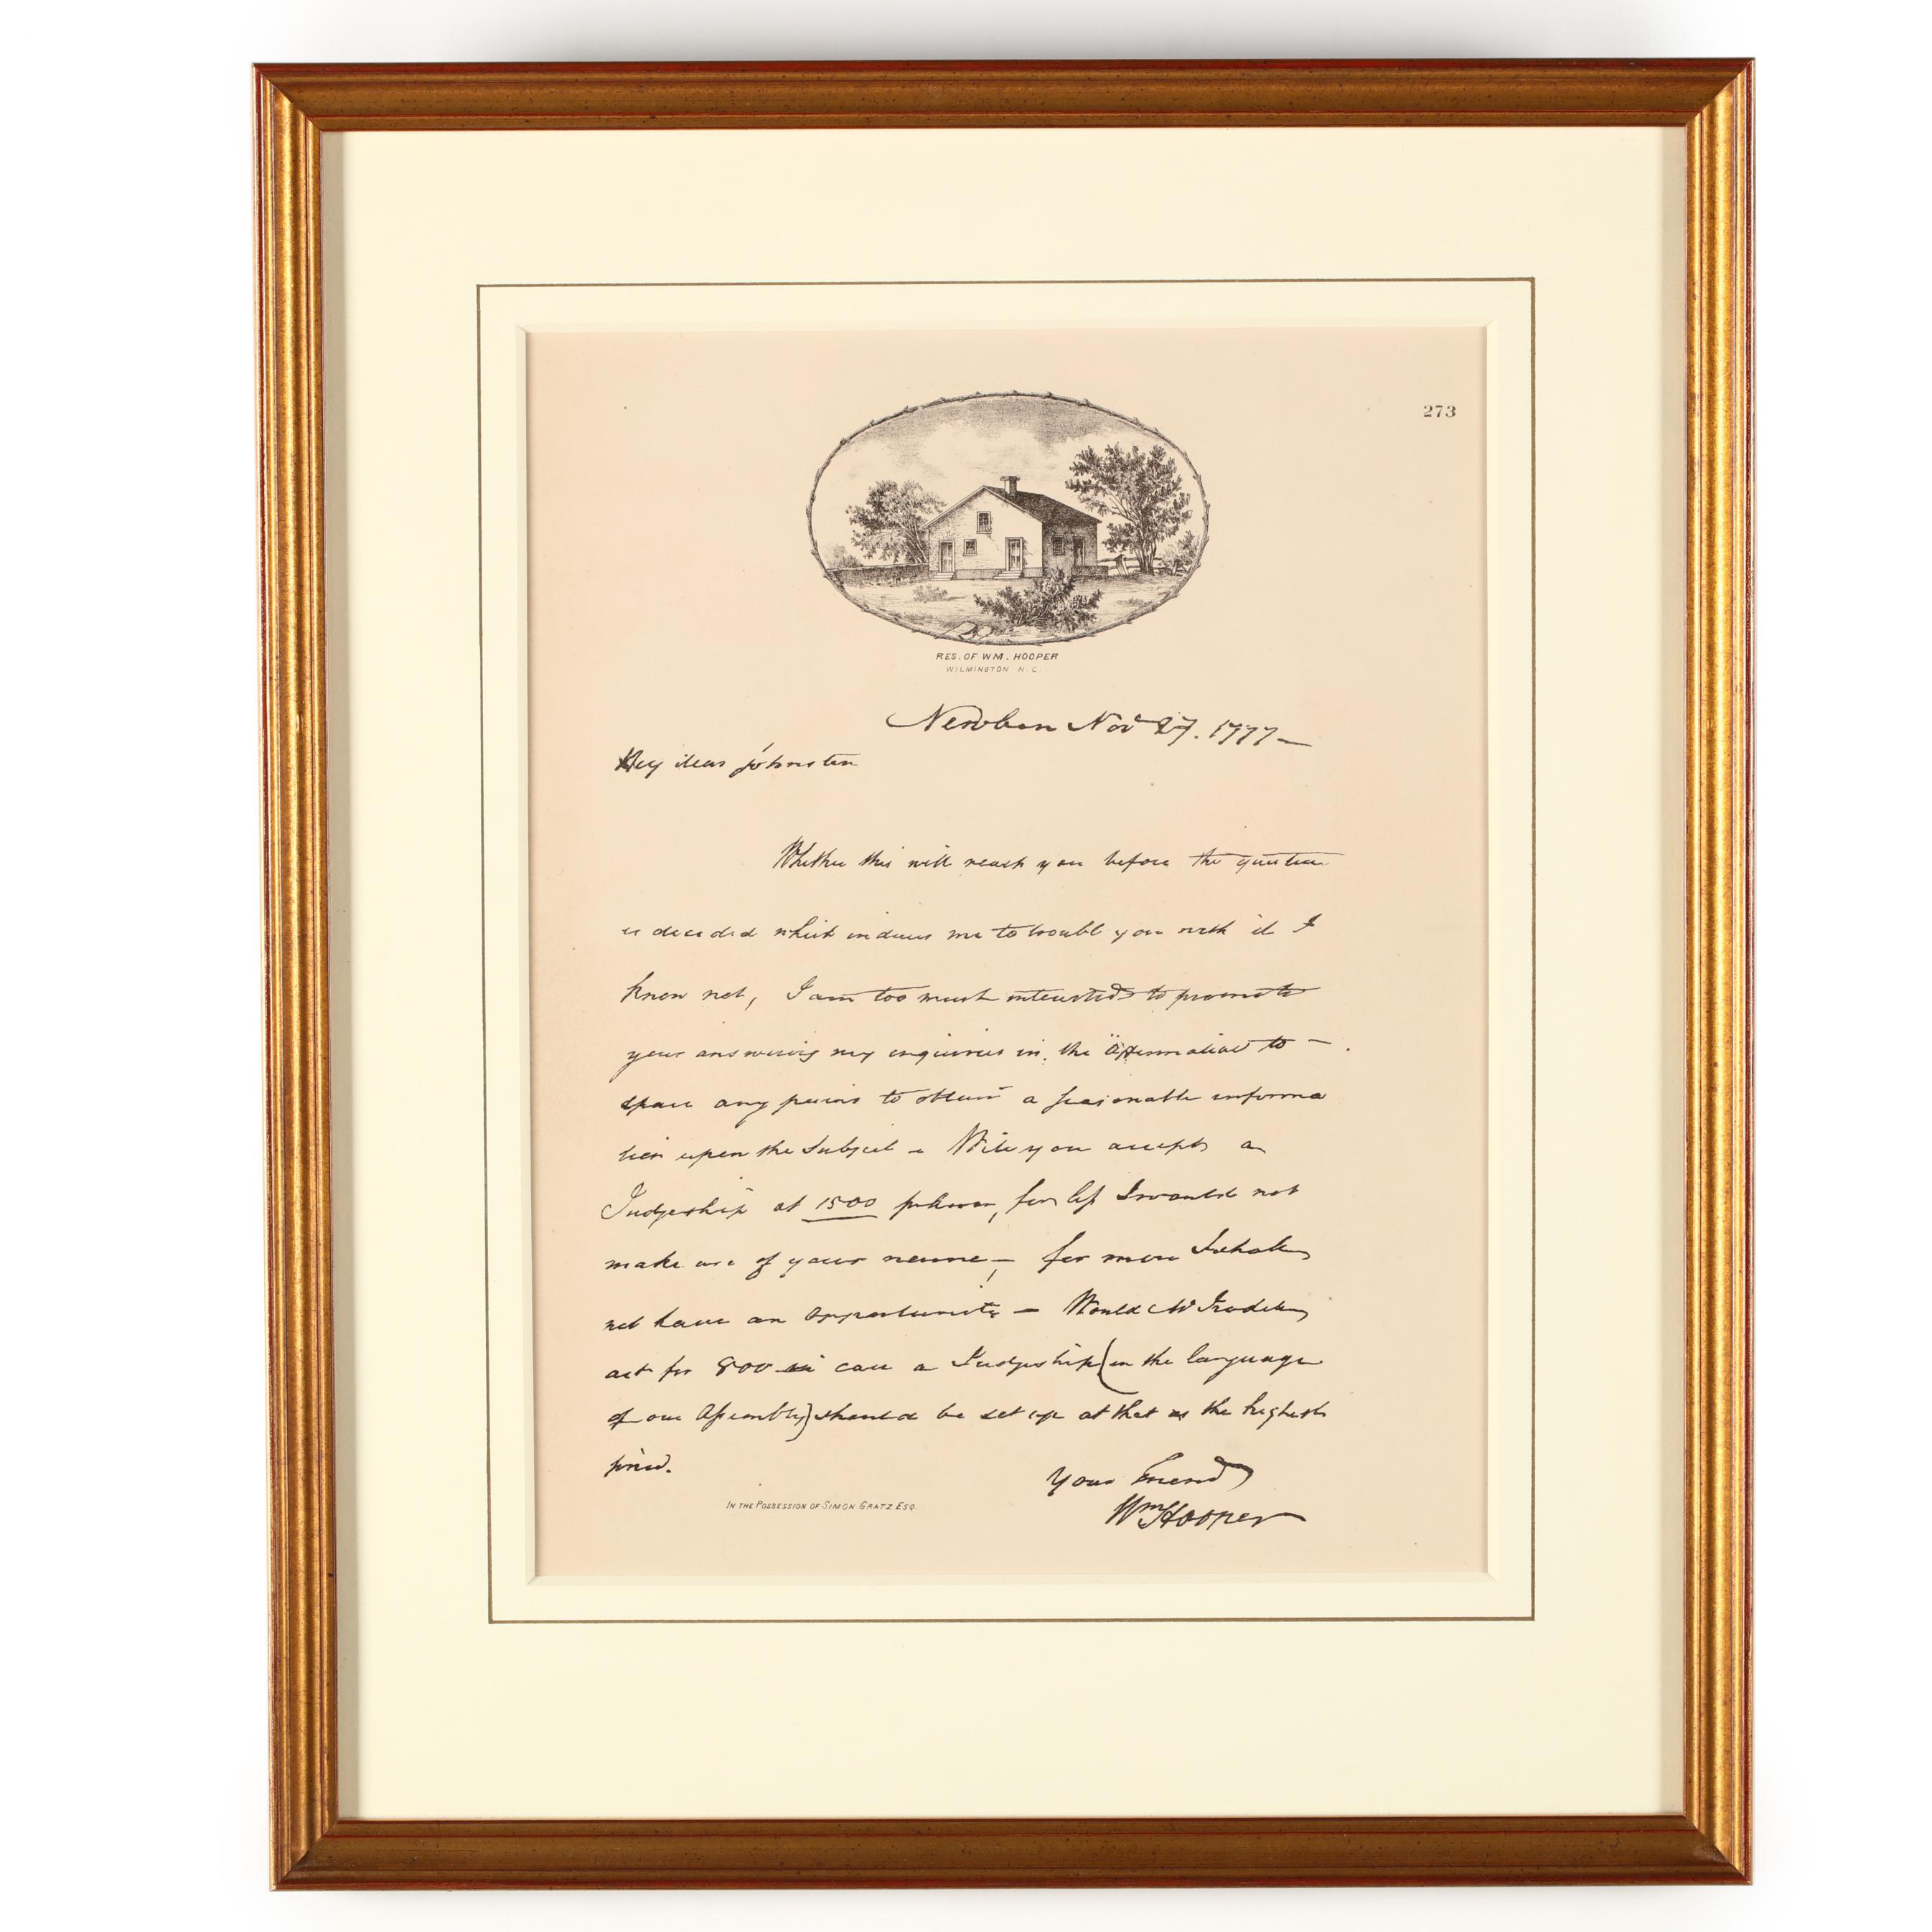 273
RES. OF WM. HOOPER
WILMINGTON N. C.
Newbern Nov 27. 1777 —
My dear Johnston
Whether this will reach you before the question
is decided which induces me to trouble you with it I
know not, I am too much interested to promote
your answering my inquiries in the Affirmative to —
spare any pains to obtain a seasonable informa
tion upon the Subject — Will you accept a
Judgeship at 1500 for less I would not
make use of your name — for more I shall
not have an opportunity — Would Mr Iredell
act for 800 in case a Judgeship (in the language
of our Assembly) should be set up at that as the highest
price.
Your Friend
Wm Hooper
IN THE POSSESSION OF SIMON GRATZ ESQ.